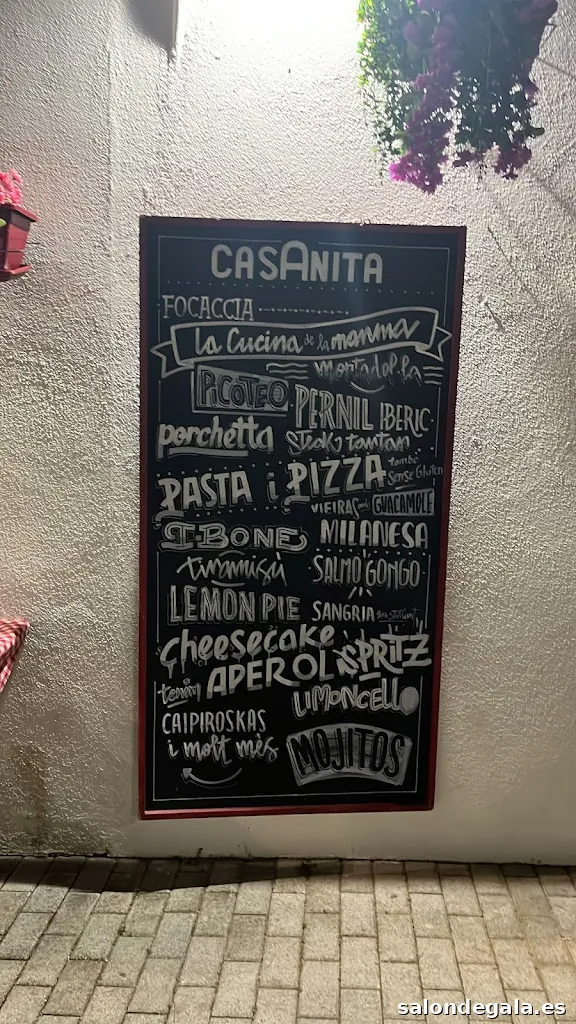 CASANITA
FOCACCIA
la Cucina de la mamma
Mortadella
PiCOTEO
PERNIL IBERIC
porchetta
Steak tartar
PASTA i PIZZA
també
Sense Gluten
VIEIRAS GUACAMOLE
T-BONE
MILANESA
tiramisú
SALMÓ GONGO
LEMON PIE
SANGRIA
Cheesecake
APEROL SPRITZ
tenim
LIMONCELLO
CAIPIROSKAS
i molt mès
MOJITOS
salondegala.es